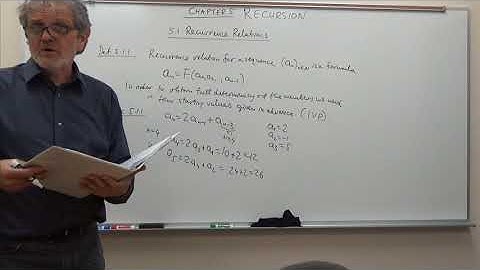 CHAPTER 5 RECURSION
5.1 Recurrence Relations
Def. 5.1.1. Recurrence relation for a sequence (aₙ)ₙ∈ℕ is a formula
aₙ = F(a₁, a₂, , aₙ₋₁)
In order to obtain full determinacy of the members we need
a few starting values given in advance. (IVP)
5.1.1 aₙ = 2aₙ₋₁ + aₙ₋₃ a₁ = 2
n=4 n=4 a₂ = -1
a₄ = 2a₃ + a₁ = 10 + 2 = 12 a₃ = 5
a₅ = 2a₄ + a₂ = 24 + 2 = 26